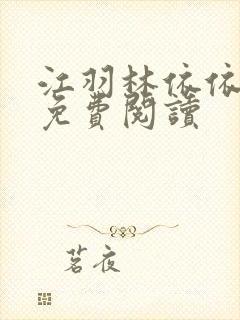 江羽林依依
免費閱讀
茗夜